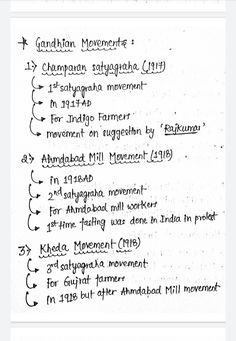 * Gandhian Movements :
1) Champaran satyagraha (1917)
1st satyagraha movement
in 1917AD
For Indigo Farmers
movement on suggestion by 'Rajkumar'
2) Ahmdabad Mill Movement (1918)
in 1918AD
2nd satyagraha movement
For Ahmdabad mill workers
1st time fasting was done in India in protest
3) Kheda Movement (1918)
3rd satyagraha movement
For Gujrat farmers
in 1918 but after Ahmdabad Mill movement